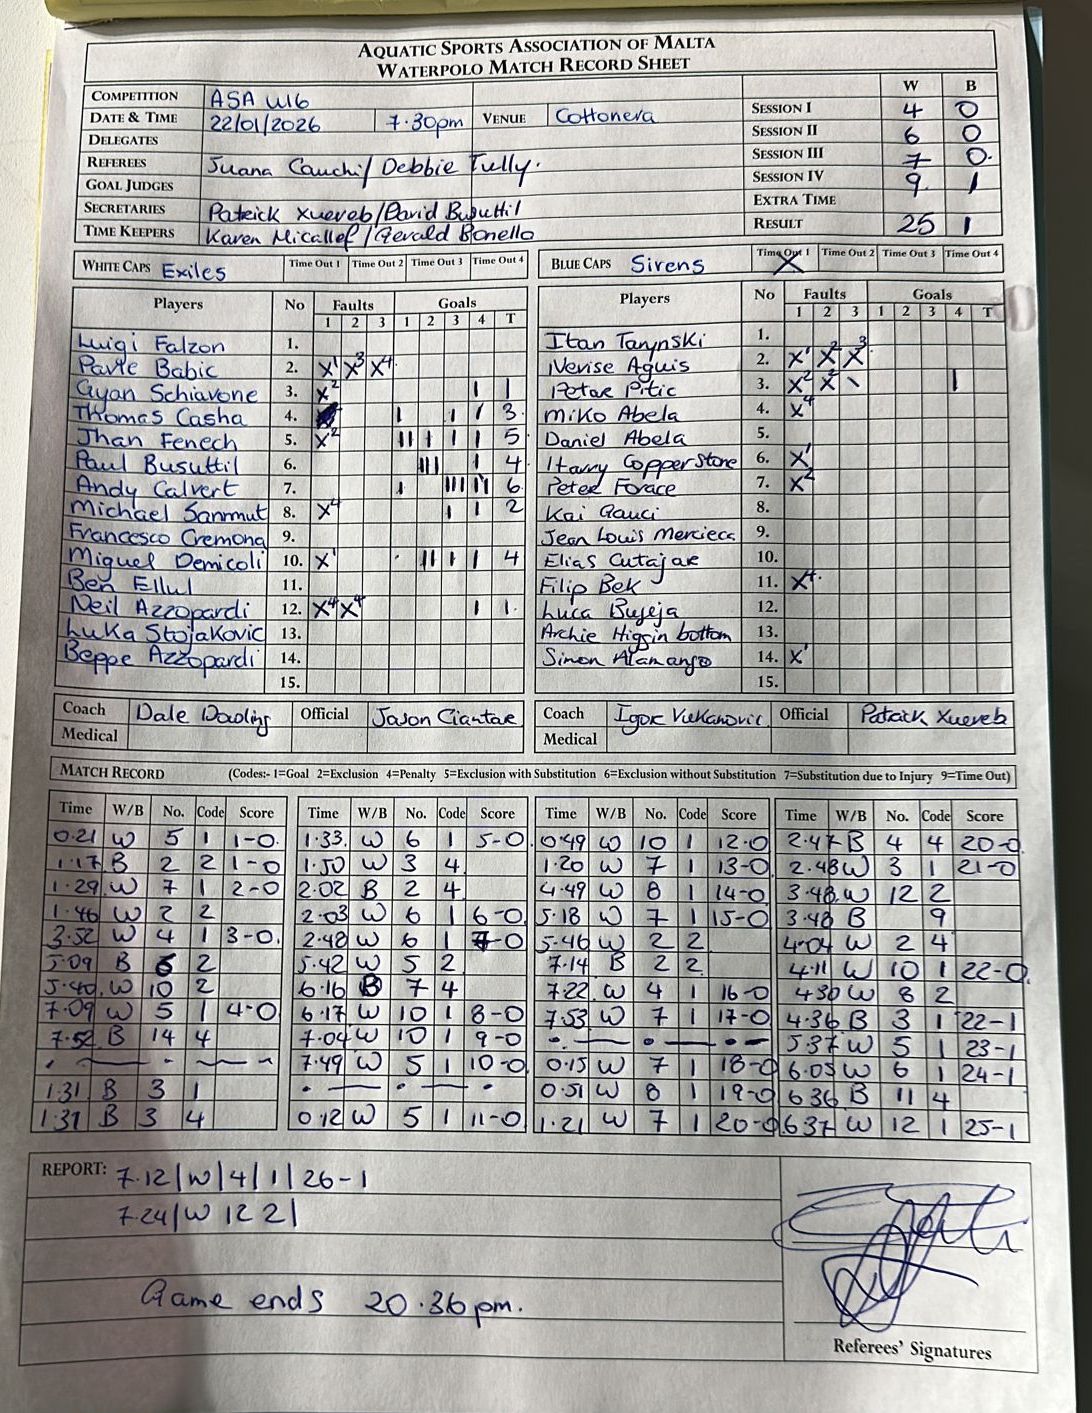 AQUATIC SPORTS ASSOCIATION OF MALTA
WATERPOLO MATCH RECORD SHEET
W B
COMPETITION ASA U16 SESSION I 4 0
DATE & TIME 22/01/2026 7.30pm VENUE Cottonera SESSION II 6 0
DELEGATES SESSION III 7 0.
REFEREES Juana Cauchi/ Debbie Tully. SESSION IV 9 1
GOAL JUDGES EXTRA TIME
SECRETARIES Patrick Xuereb/David Busuttil RESULT 25 1
TIME KEEPERS Karen Micallef/Gerald Bonello
WHITE CAPS Exiles Time Out 1 Time Out 2 Time Out 3 Time Out 4
BLUE CAPS Sirens Time Out 1 X Time Out 2 Time Out 3 Time Out 4
Players No Faults Goals
1 2 3 1 2 3 4 T
Luigi Falzon 1.
Pavle Babic 2. X1 X3 X4
Gyan Schiavone 3. X2 I 1
Thomas Casha 4. I I I 3
Jhan Fenech 5. X2 II I I I 5
Paul Busuttil 6. III I 4
Andy Calvert 7. I IIII 6
Michael Sammut 8. X4 I I 2
Francesco Cremona 9.
Miguel Demicoli 10. X1 II I I 4
Ben Ellul 11.
Neil Azzopardi 12. X4 X4 I 1
Luka Stojakovic 13.
Beppe Azzopardi 14.
15.
Coach Dale Dooling Official Jason Ciantar
Medical
Players No Faults Goals
1 2 3 1 2 3 4 T
1.
2. X1 X2 X3
Petar Pitic 3. X2 X2 \ I
Miko Abela 4. X4
Daniel Abela 5.
Harry Copperstone 6. X1
Peter 7. X2
Kai Gauci 8.
Jean Louis Mercieca 9.
Elias Cutajar 10.
Filip Bek 11. X4
Luca Bugeja 12.
Archie Higginbottom 13.
Simon 14. X1
15.
Coach Igor Vukanovic Official Patrick Xuereb
Medical
MATCH RECORD (Codes:- 1=Goal 2=Exclusion 4=Penalty 5=Exclusion with Substitution 6=Exclusion without Substitution 7=Substitution due to Injury 9=Time Out)
Time W/B No. Code Score
0.21 W 5 1 1-0
1.17 B 2 2 1-0
1.29 W 7 1 2-0
1.46 W 2 2
3.52 W 4 1 3-0
5.09 B 6 2
5.40 W 10 2
7.09 W 5 1 4-0
7.52 B 14 4
1.31 B 3 1
1.31 B 3 4
Time W/B No. Code Score
1.33 W 6 1 5-0
1.50 W 3 4
2.02 B 2 4
2.03 W 6 1 6-0
2.48 W 6 1 7-0
5.42 W 5 2
6.16 B 7 4
6.17 W 10 1 8-0
7.04 W 10 1 9-0
7.49 W 5 1 10-0
0.12 W 5 1 11-0
Time W/B No. Code Score
0.49 W 10 1 12-0
1.20 W 7 1 13-0
4.49 W 8 1 14-0
5.18 W 7 1 15-0
5.46 W 2 2
7.14 B 2 2
7.22 W 4 1 16-0
7.53 W 7 1 17-0
0.15 W 7 1 18-0
0.51 W 8 1 19-0
1.21 W 7 1 20-0
Time W/B No. Code Score
2.47 B 4 4 20-0
2.48 W 3 1 21-0
3.48 W 12 2
3.48 B 9
4.04 W 2 4
4.11 W 10 1 22-0
4.30 W 8 2
4.36 B 3 1 22-1
5.37 W 5 1 23-1
6.05 W 6 1 24-1
6.36 B 11 4
6.37 W 12 1 25-1
REPORT: 7.12/W/4/1/26-1
7.24/W 12 2/
Game ends 20.36pm.
Referees' Signatures